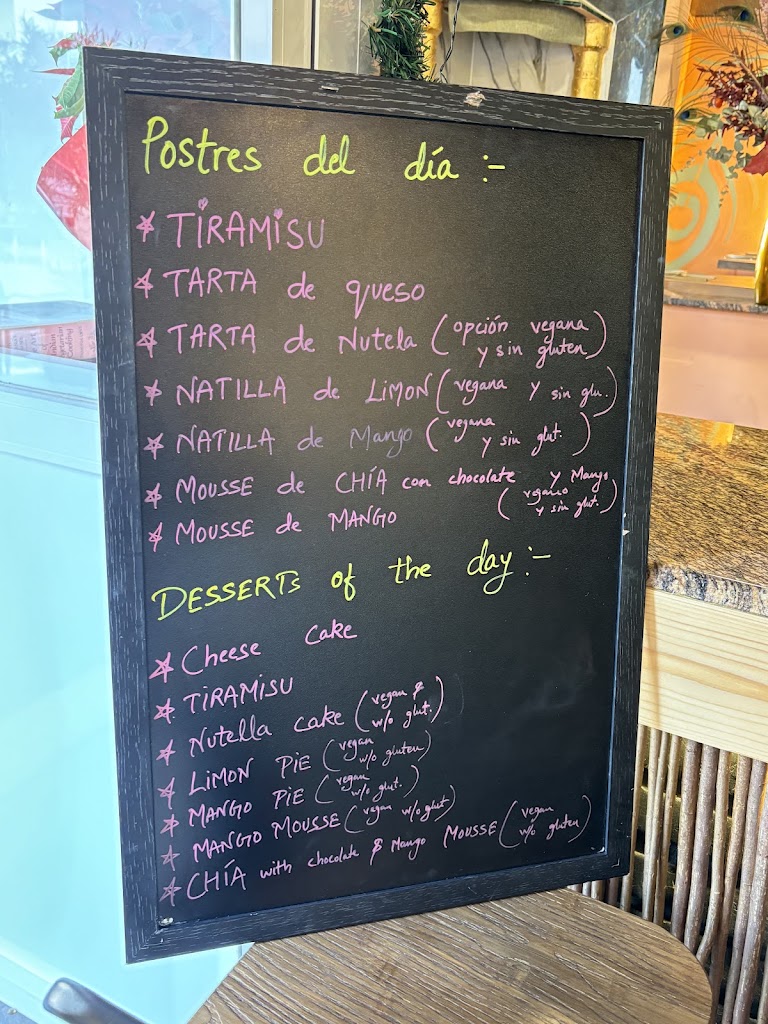 Postres del día :-
* TIRAMISU
* TARTA de queso
* TARTA de Nutela (opción vegana y sin gluten)
* NATILLA de LIMON (vegana y sin glu.)
* NATILLA de Mango (vegana y sin glut.)
* MOUSSE de CHÍA con chocolate y Mango (vegano y sin glut.)
* MOUSSE de MANGO
DESSERTS of the day :-
* Cheese cake
* TIRAMISU
* Nutella cake (vegan & w/o glut.)
* LIMON PIE (vegan w/o gluten)
* MANGO PIE (vegan w/o glut.)
* MANGO MOUSSE (vegan w/o glut)
* CHÍA with chocolate & Mango MOUSSE (vegan w/o gluten)